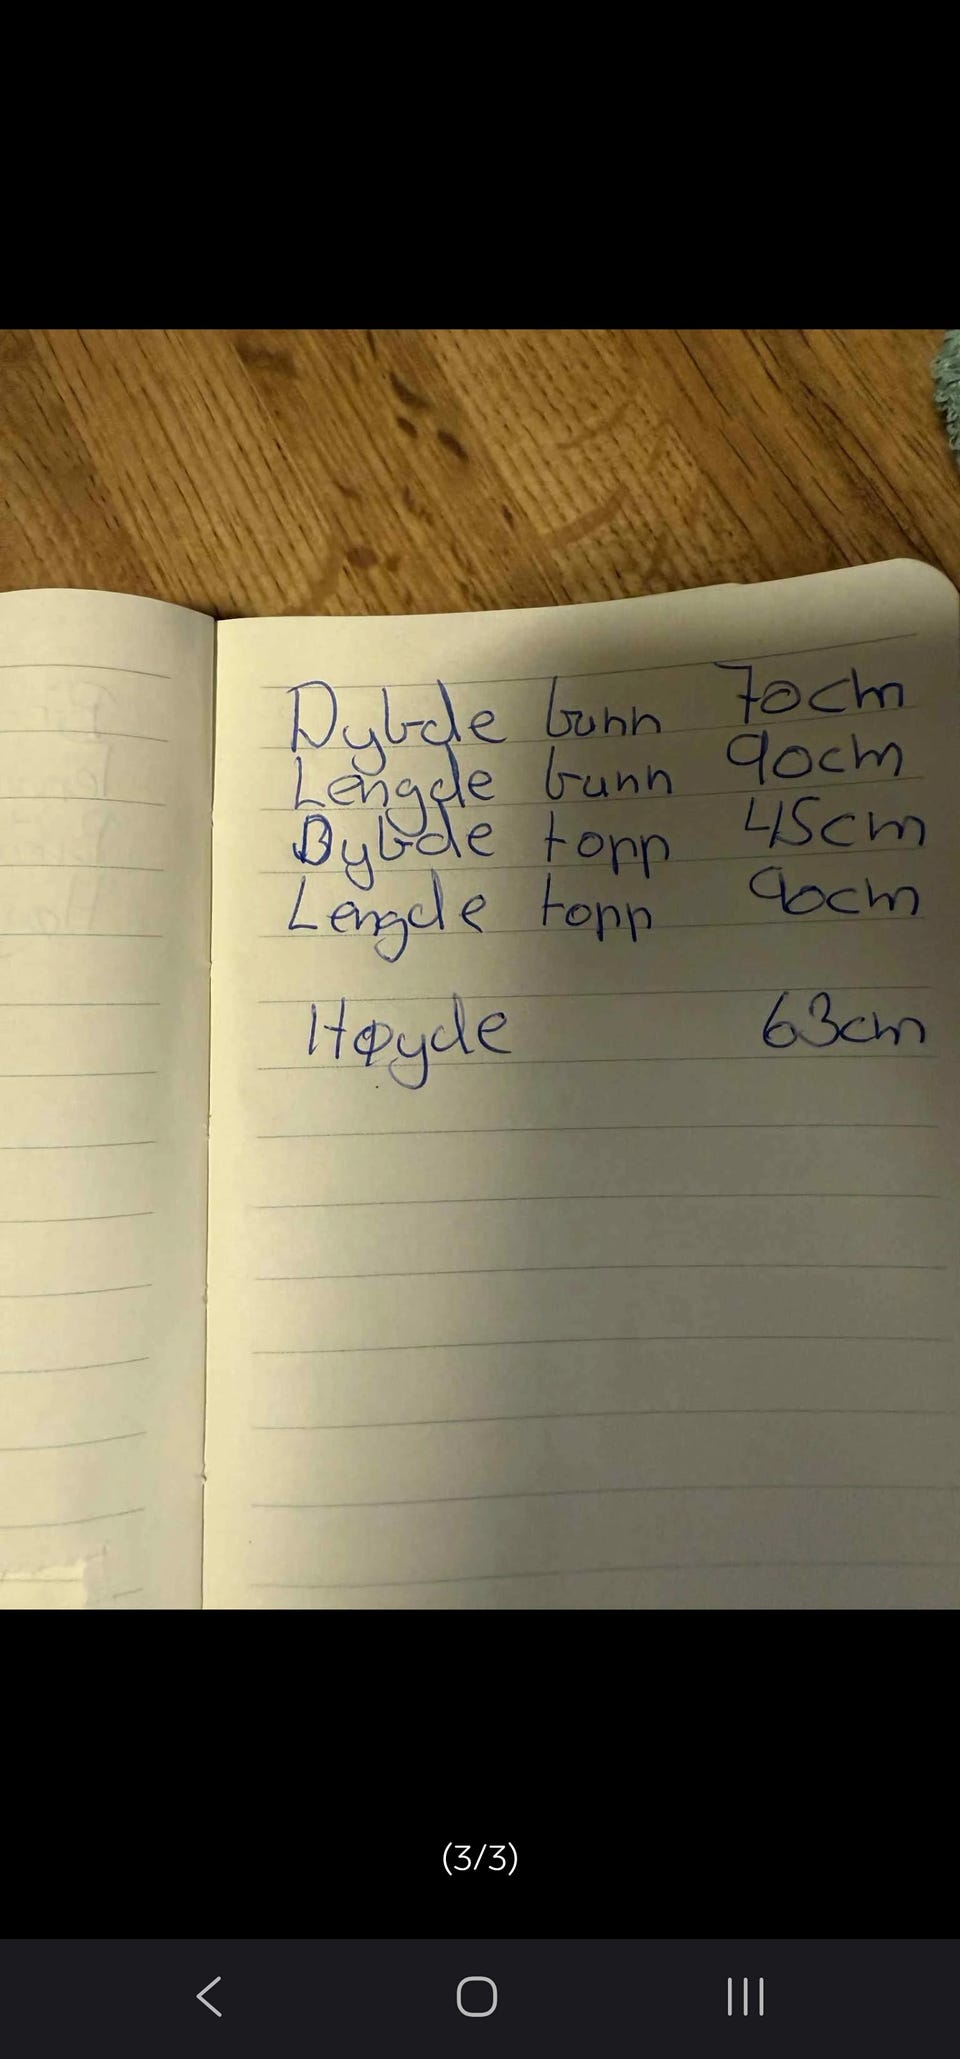 Dybde bunn 70cm
Lengde bunn 90cm
Dybde topp 45cm
Lengde topp 90cm
Høyde 63cm
(3/3)